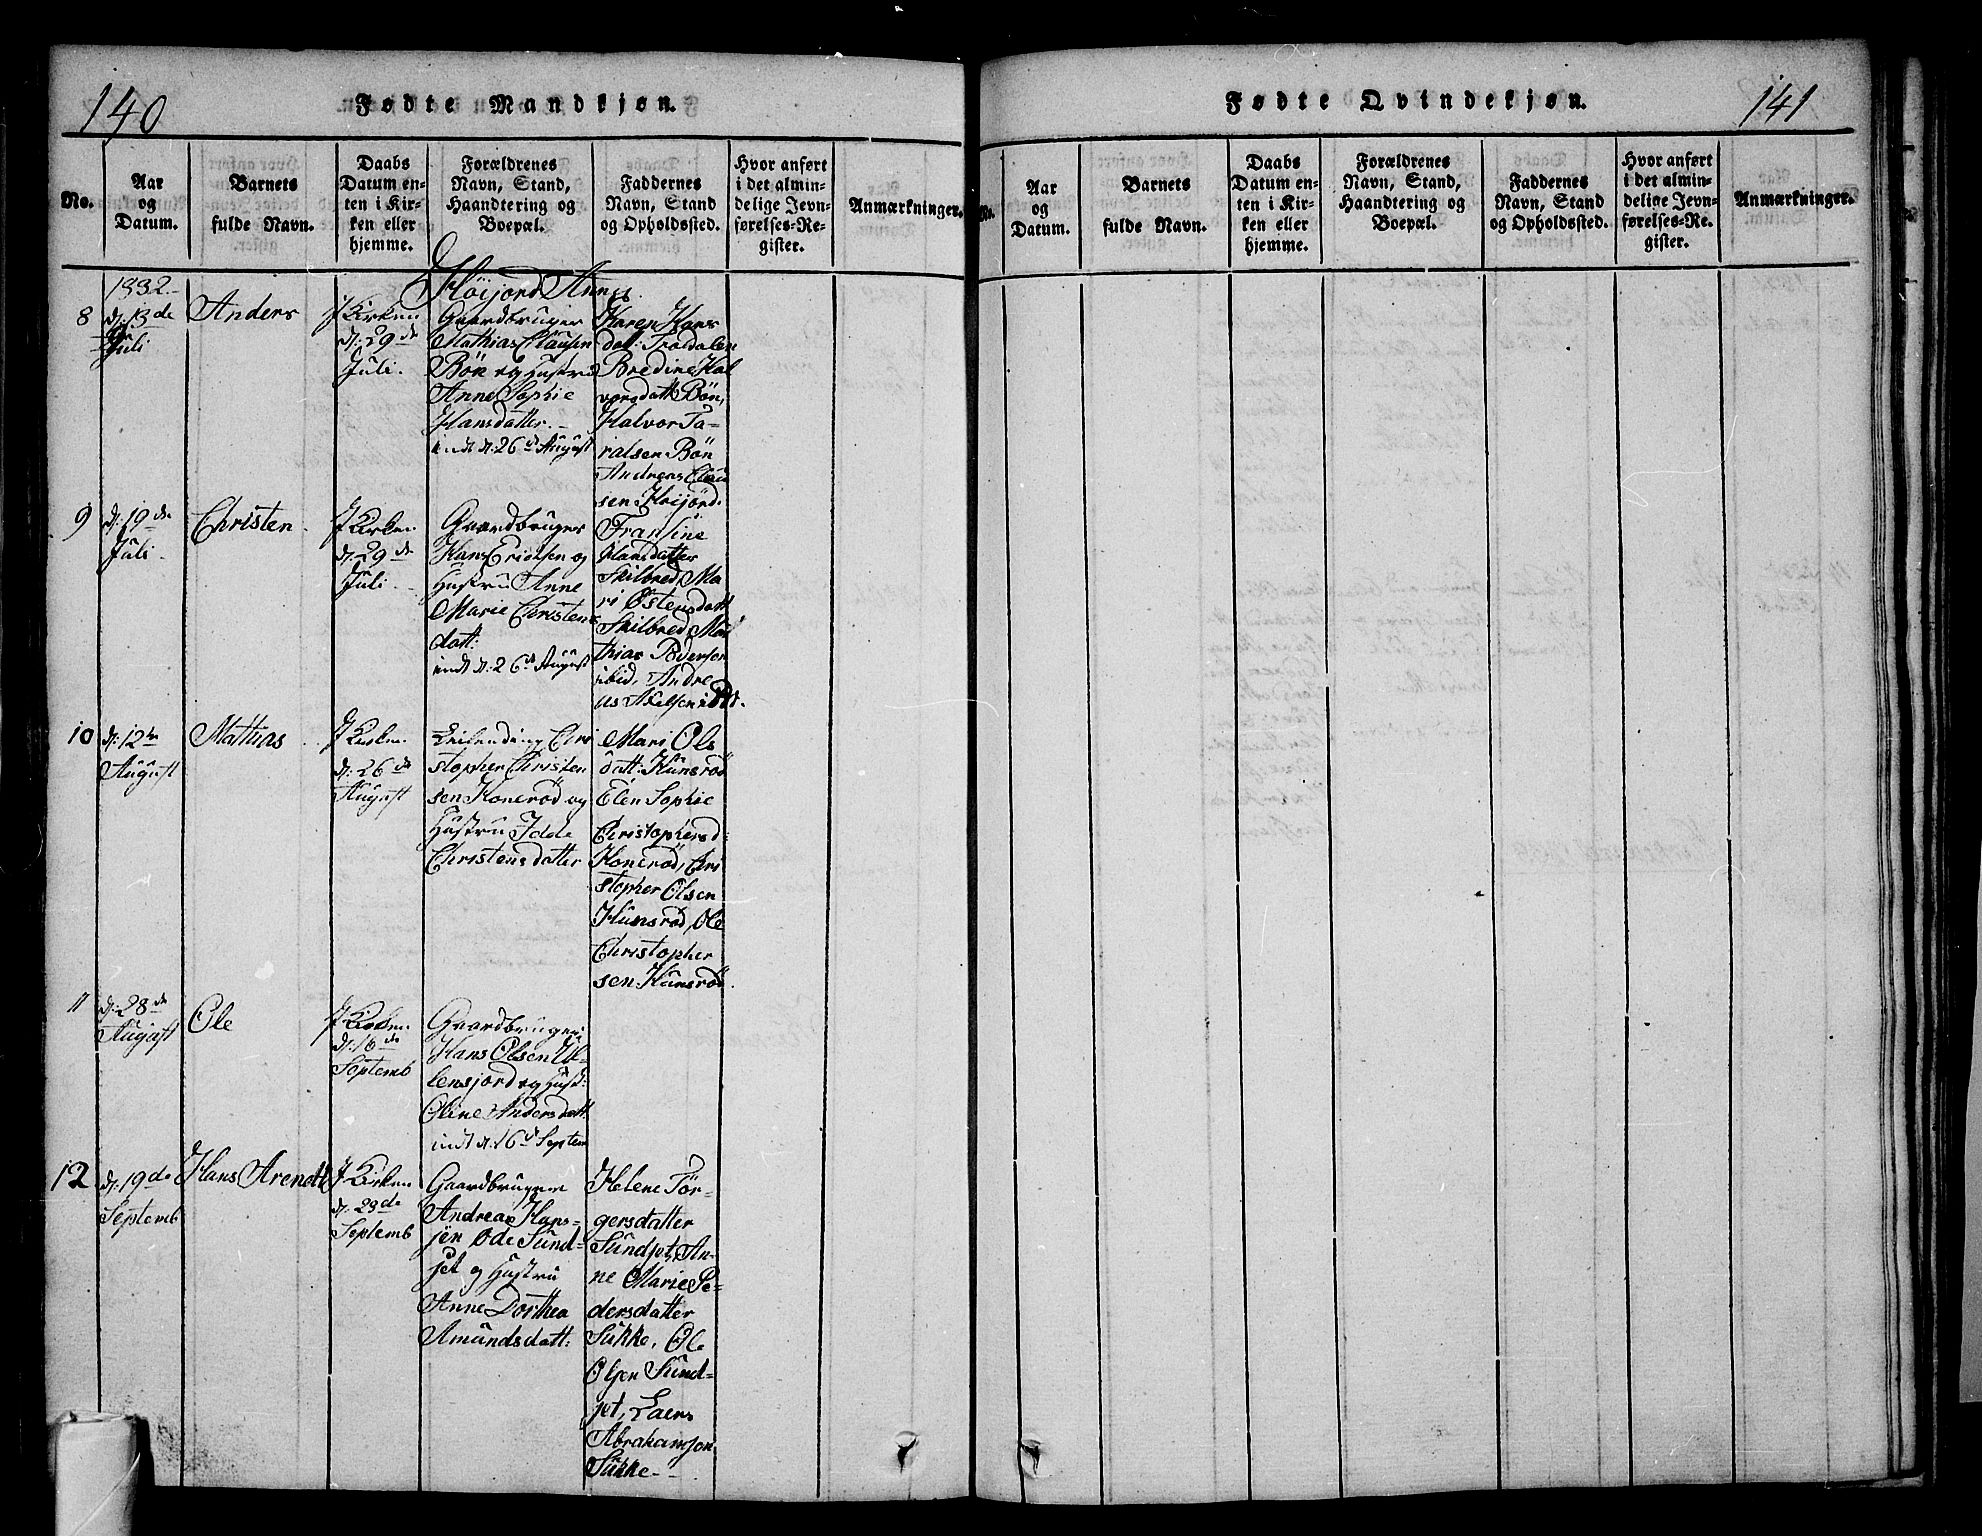 140
Fødte Mandkjøn.
No.
Aar
og
Datum.
Barnets
fulde Navn.
Daabs
Datum en-
ten i Kir-
ken eller
hjemme.
Forældrenes
Navn, Stand,
Haandtering og
Boepæl.
Faddernes
Navn, Stand
og Opholdssted.
Hvor anført
i det almin-
delige Jevn-
førelses-Re-
gister.
Anmærkninger.
Høijord Annex
8
1832.
d: 13de
Juli
Anders
I Kirken
d: 29de
Juli.
Gaardbruger
Mathias Clausen
Bön og Hustru
Anne Sophie
Hansdatter.-
indt d: 26de August
Karen Hans
dat: Trædalen
Bredine Hal
vorsdatt Bön,
Halvor Ta-
ralsen Bön
Andreas Clau
sen Høijord.
9
d: 19de
Juli.
Christen.
I Kirken
d: 29de
Juli.
Gaardbruger
Hans Ericksen og
Hustru Anne
Marie Christens
datt:
indt d: 26de August
Fransine
Hansdatter
Skilbred, Ma
ri Østensdatt
Skilbred, Mat
thias Pedersen
ibid, Andre
as Axelsen ibid.
10
d: 12te
August
Mathias
I Kirken
d: 26de
August
Leilending Chri
stopher Christen
sen Konerød og
Hustru Idde
Christensdatter
Mari Ols
datt: Kunsrød
Elen Sophie
Christophersd.
Konerød, Chri
stopher Olsen
Kunsrød, Ole
Christopher
sen Kunsrød.
11
d: 28de
August
Ole
I Kirken
d: 16de
Septemb
Gaardbruger
Hans Olsen Ul-
lensjord og Hust:
Oline Andersdatt:
indt d: 16de Septem
12
d: 19de
Septemb
Hans Arendt
I Kirken
d: 23de
Septemb
Gaardbruger
Andreas Han-
sen Øde Sund-
set og Hustru
Anne Dorthea
Amundsdatt:
Helene Tör-
gersdatter
Sundset, An-
ne Marie Pe-
dersdatter
Sukke, Ole
Olsen Sund-
set, Laers
Abrahamsen
Sukke.-
Fødte Qvindekjøn.
141
No.
Aar
og
Datum.
Barnets
fulde Navn.
Daabs
Datum en-
ten i Kir-
ken eller
hjemme.
Forældrenes
Navn, Stand,
Haandtering og
Boepæl.
Faddernes
Navn, Stand
og Opholdssted.
Hvor anført
i det almin-
delige Jevn-
førelses-Re-
gister.
Anmærkninger.